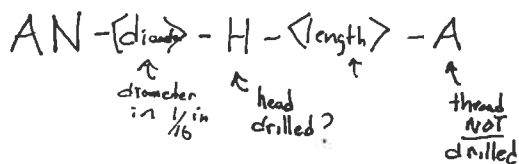 AN - <diameter> - H - <length> - A
diameter in 1/16 in
head drilled?
thread NOT drilled